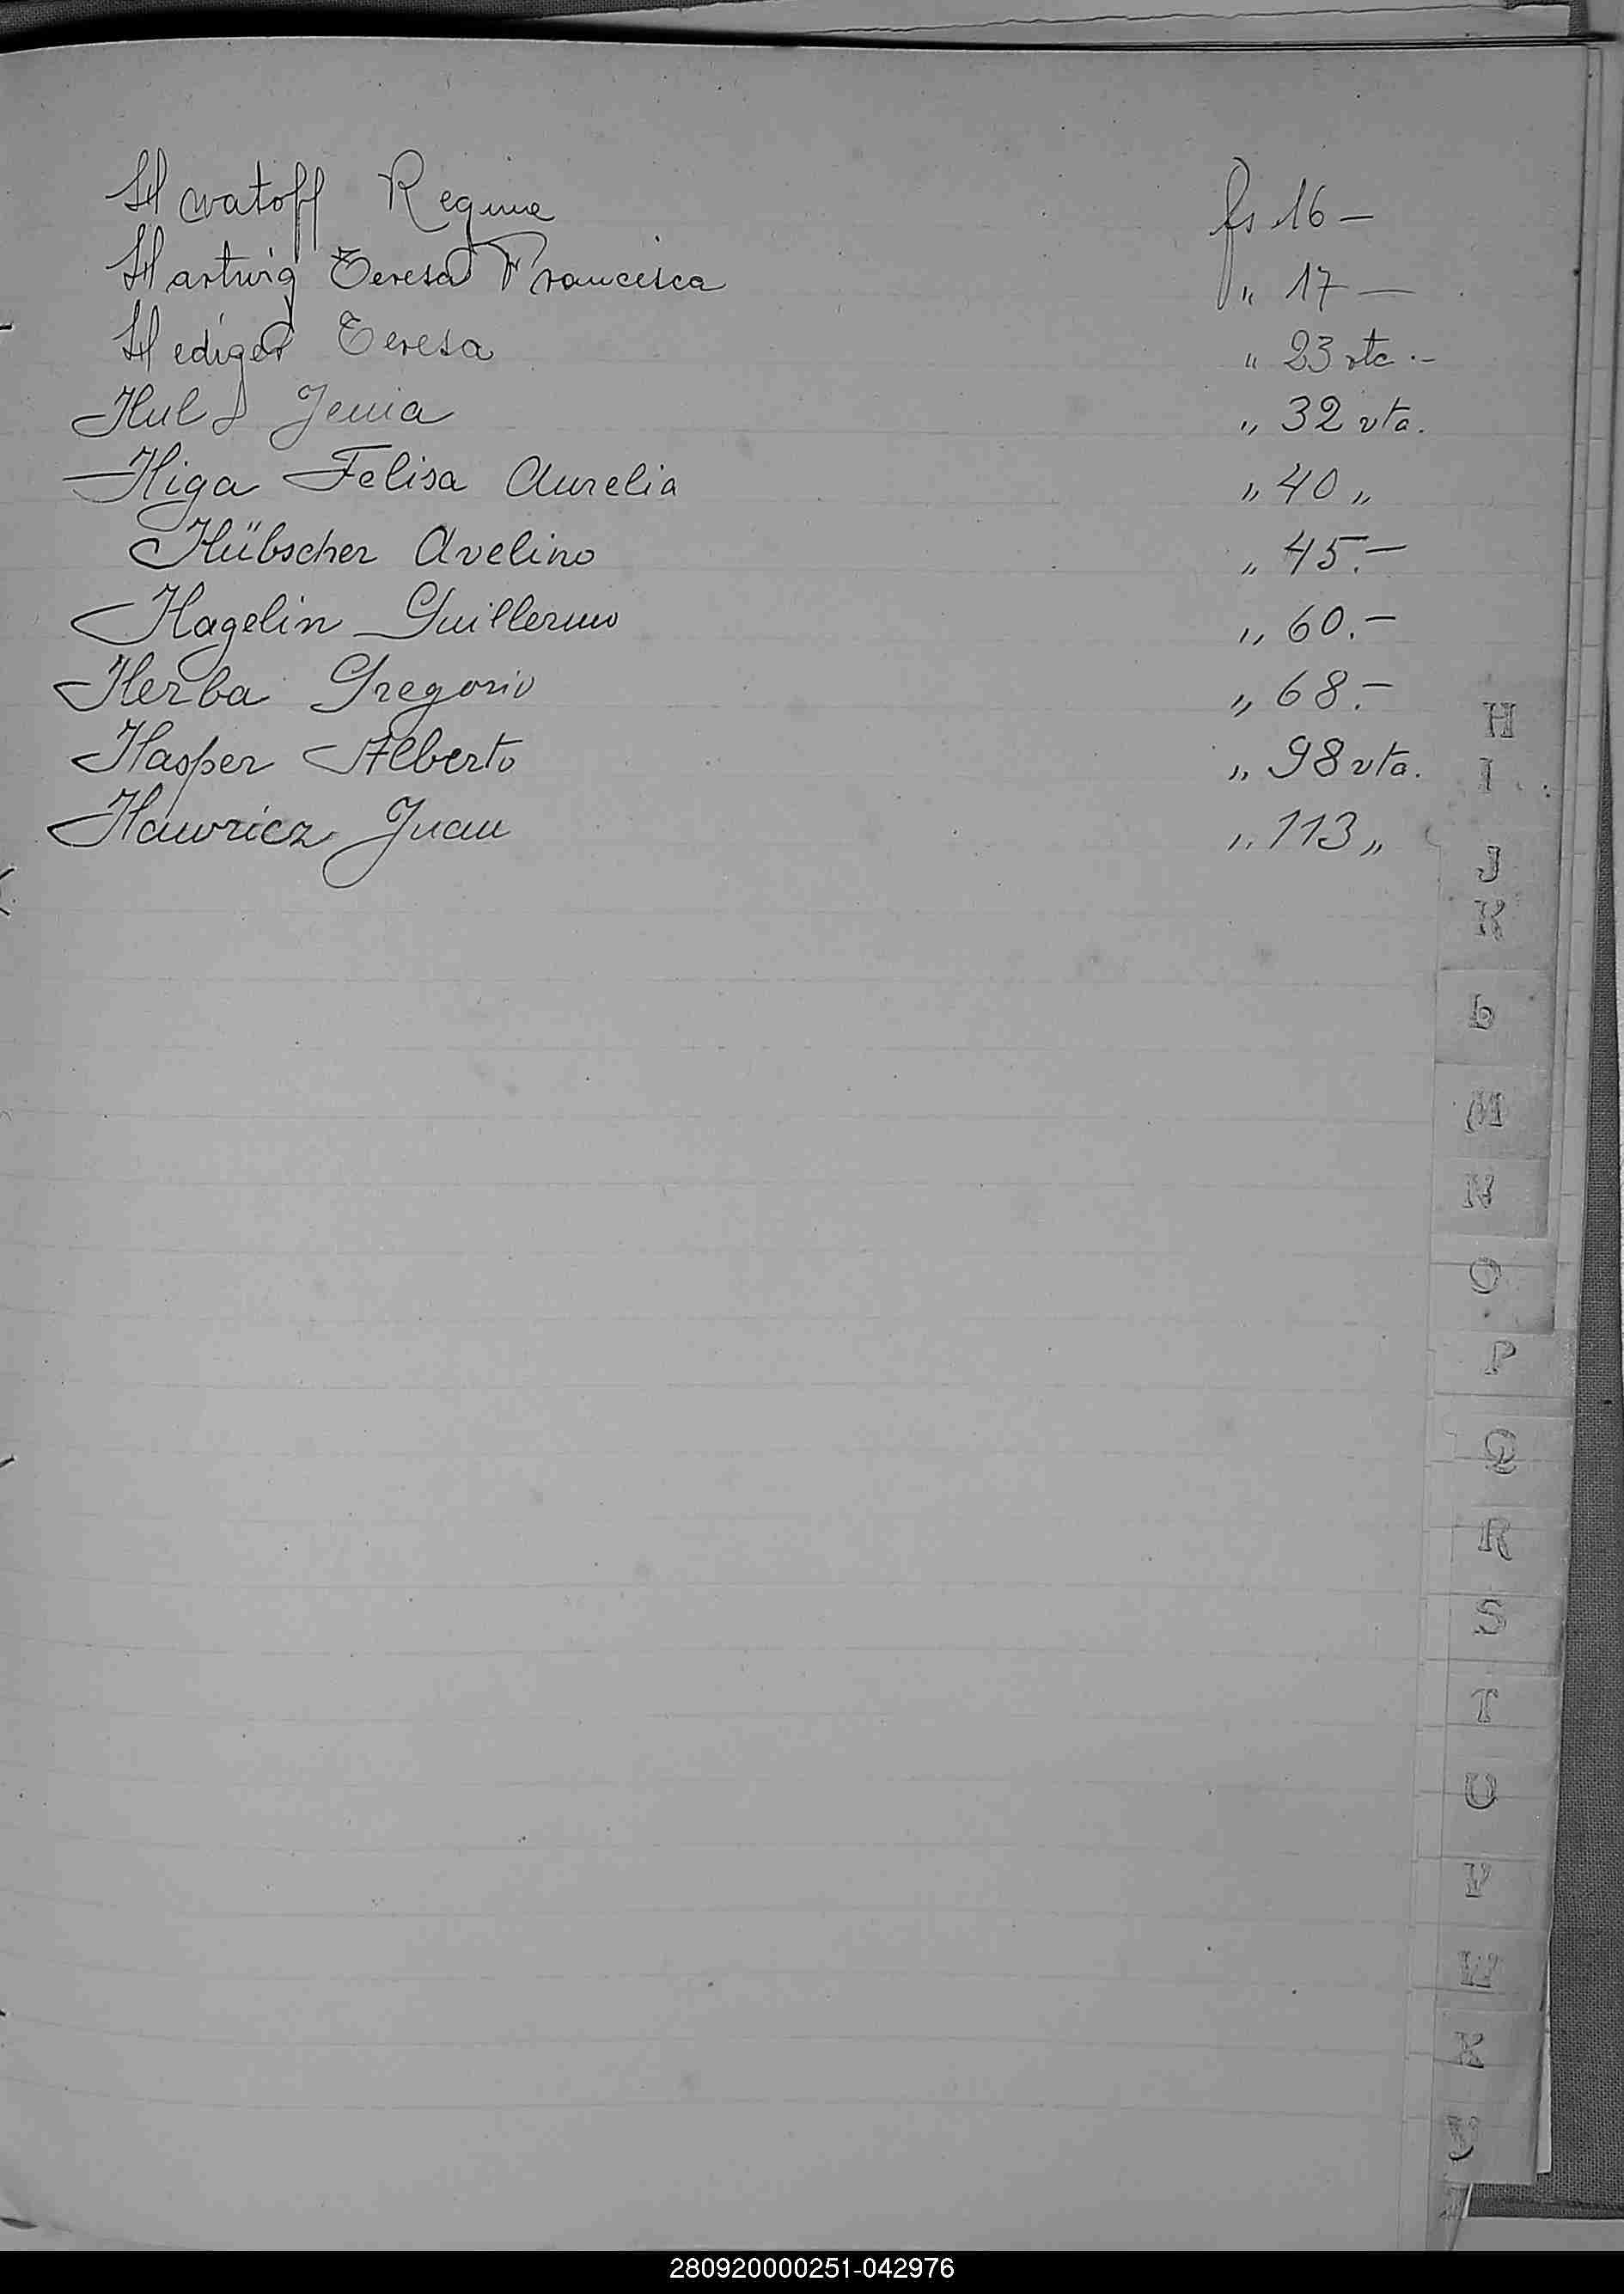 Hwatoff Regina fs 16 —
Hartwig Teresa Francisca " 17 —
Hediger Teresa " 23 vta . —
Hul Jenia " 32 vta.
Higa Felisa Aurelia " 40 "
Hübscher Avelino " 45. —
Hagelin Guillermo " 60. —
Herba Gregorio " 68. —
Hasper Alberto " 98 vta.
Hawricz Juan " 113 "
H
I
J
K
L
M
N
O
P
Q
R
S
T
U
V
W
X
Y
280920000251-042976